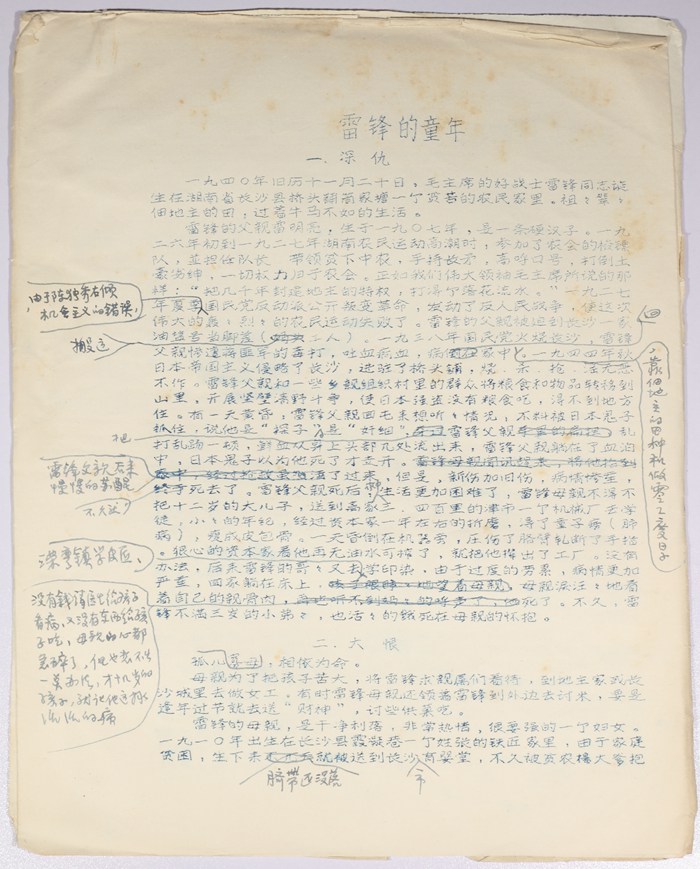 雷锋的童年
一、深仇
一九四〇年旧历十一月二十日,毛主席的好战士雷锋同志诞
生在湖南省长沙县桥头 家塘一个贫苦的农民家里。祖々辈々
佃地主的田,过着牛马不如的生活。
雷锋的父亲雷明亮,生于一九〇七年,是一条硬汉子。一九
二六年初到一九二七年湖南农民运动高潮时,参加了农会的
队,并担任队长 带领贫下中农,手持梭矛,高呼口号,打倒土
豪劣绅,一切权力归于农会。正如我们伟大领袖毛主席所说的那
样:“把几千年封建地主的特权,打得个落花流水。”一九二七
年夏 国民党反动派公开叛变革命,发动了反人民战争,使这次
由于陈独秀右倾
机会主义的错误,
伟大的轰々烈々的农民运动失败了。雷锋的父亲被迫到长沙一家
搬运
油 当脚 工人)。一九三八年国民党火烧长沙,雷锋
父亲惨遭蒋匪军的毒打,吐血痢血,病 家中。一九四四年秋
回
,靠佃地主的田种和做零工度日
日本帝国主义侵略了长沙,进驻了桥头铺,烧、杀、抢、淫无恶
不作。雷锋父亲和一些乡亲组织村里的群众将粮食和物品转移到
山里,开展坚壁清野斗争,使日本强盗没有粮食吃,得不到地方
住。有一天黄昏,雷锋父亲回毛来想听々情况,不料被日本鬼子
抓住,说他是“探子”是“奸细”, 雷锋父亲 乱
把
打乱踢一顿,鲜血从身上头部几处流出来,雷锋父亲躺在了血泊
中,日本鬼子以为他死了才走开。
雷锋父亲后来
慢慢的苏醒
了过来,但是,新伤加旧伤,病情垮重,
不久
终于死去了。雷锋父亲死后,生活更加困难了,雷锋母亲不得不
把十二岁的大儿子,送到离家三、四百里的津市一个机械厂去学
徒,小々的年纪,经过资本家一年左右的折磨,得了童子痨(肺
病),瘦成皮包骨。一天昏倒在机器旁,压伤了胳臂轧断了手指
。狠心的资本家看他再无油水可榨了,就把他撵出了工厂。没有
办法,后来雷锋的哥々又去 学印染,由于过度的劳累,病情更加
荣湾镇
严重,回家躺在床上, 母亲泪汪々地看
着自己的亲骨肉, 死了。不久,雷
没有钱请医生给孩子
看病,又没有东西给孩
子吃,母亲的心都
急碎了,但也想不出
一点办法,才十几岁的
孩子,
的病
锋不满三岁的小弟々,也活々的饿死在母亲的怀抱。
二、大恨
孤儿寡母,相依为命。
母亲为了把孩子苦大,将雷锋求亲属们看持,到地主家或长
沙城里去做女工。有时雷锋母亲还领着雷锋到外边去讨米,要是
逢年过节就去送“财神”,讨些供菜吃。
雷锋的母亲,是干净利落,非常热情,很要强的一个妇女。
一九一〇年出生在长沙县霞凝巷一个姓张的铁匠家里,由于家庭
贫困,生下来 就被送到长沙育婴堂,不久被贫农杨大爹把
脐带还没落
市